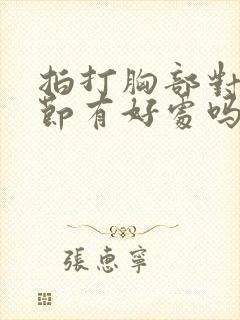 拍打胸部對
節有好處嗎
張惠寧